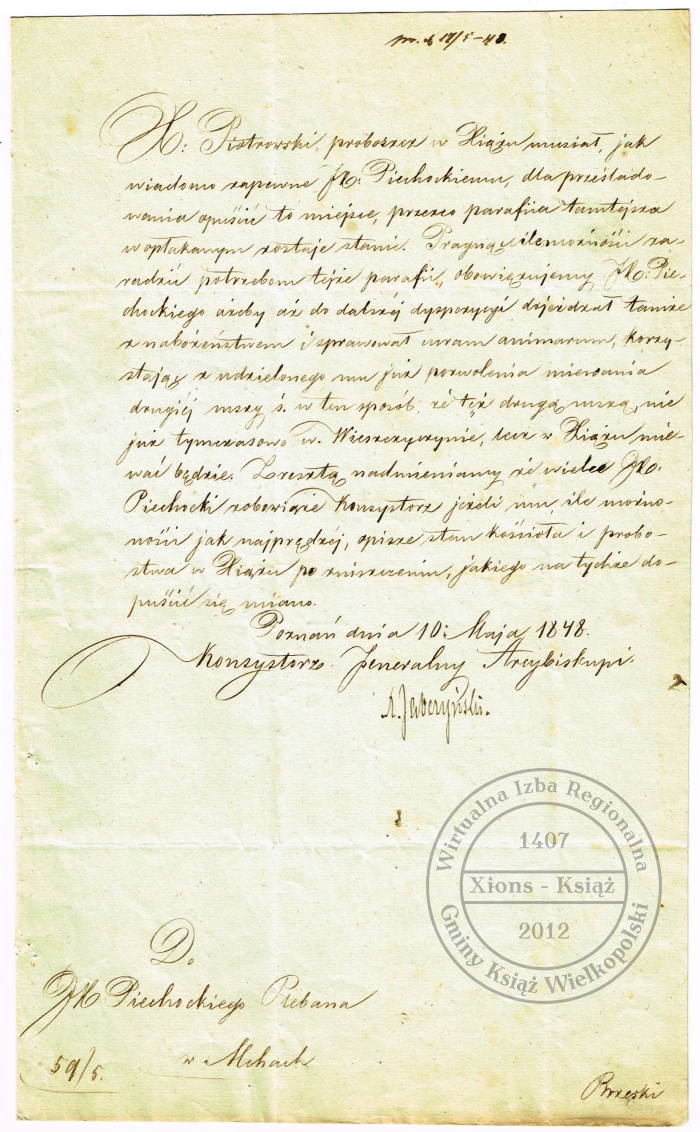 pr. d. 17/5 – 48.
X. Piotrowski, proboszcz w Xiążu musiał, jak
wiadomo zapewne JX. Piechockiemu, dla prześlado-
wania opuścić to miejsce, przezco parafiia tamtejsza
w opłakanym zostaje stanie. Pragnąc ile możności za-
radzić potrzebom tejże parafii, obowięzujemy JX. Pie-
chockiego ażeby aż do dalszéj dyspozycyi dojeżdzał tamże
z nabożeństwem i sprawował curam animarum, korzy-
stając z udzielonego mu już pozwolenia miewania
drugiéj mszy ś. w ten sposób, że tęż drugą mszą, nie
już tymczasowo w. Wieszczyczynie, lecz w Xiążu mie-
wać będzie. Zresztą nadmieniamy że wielce JX.
Piechocki zobowiąże Konsystorz jeżeli mu, ile możno-
ności jak najprędzéj, opisze stan kościoła i probo-
stwa w Xiążu po zniszczeniu, jakiego na tychże do-
puścić się miano.
Poznań dnia 10. Maja 1848.
Konsystorz Jeneralny Arcybiskupi.
Jabczyński.
Do
JX Piechockiego Plebana
w Mchach
59/5.
Brzeski
Wirtualna Izba Regionalna
1407
Xions - Książ
2012
Gminy Książ Wielkopolski